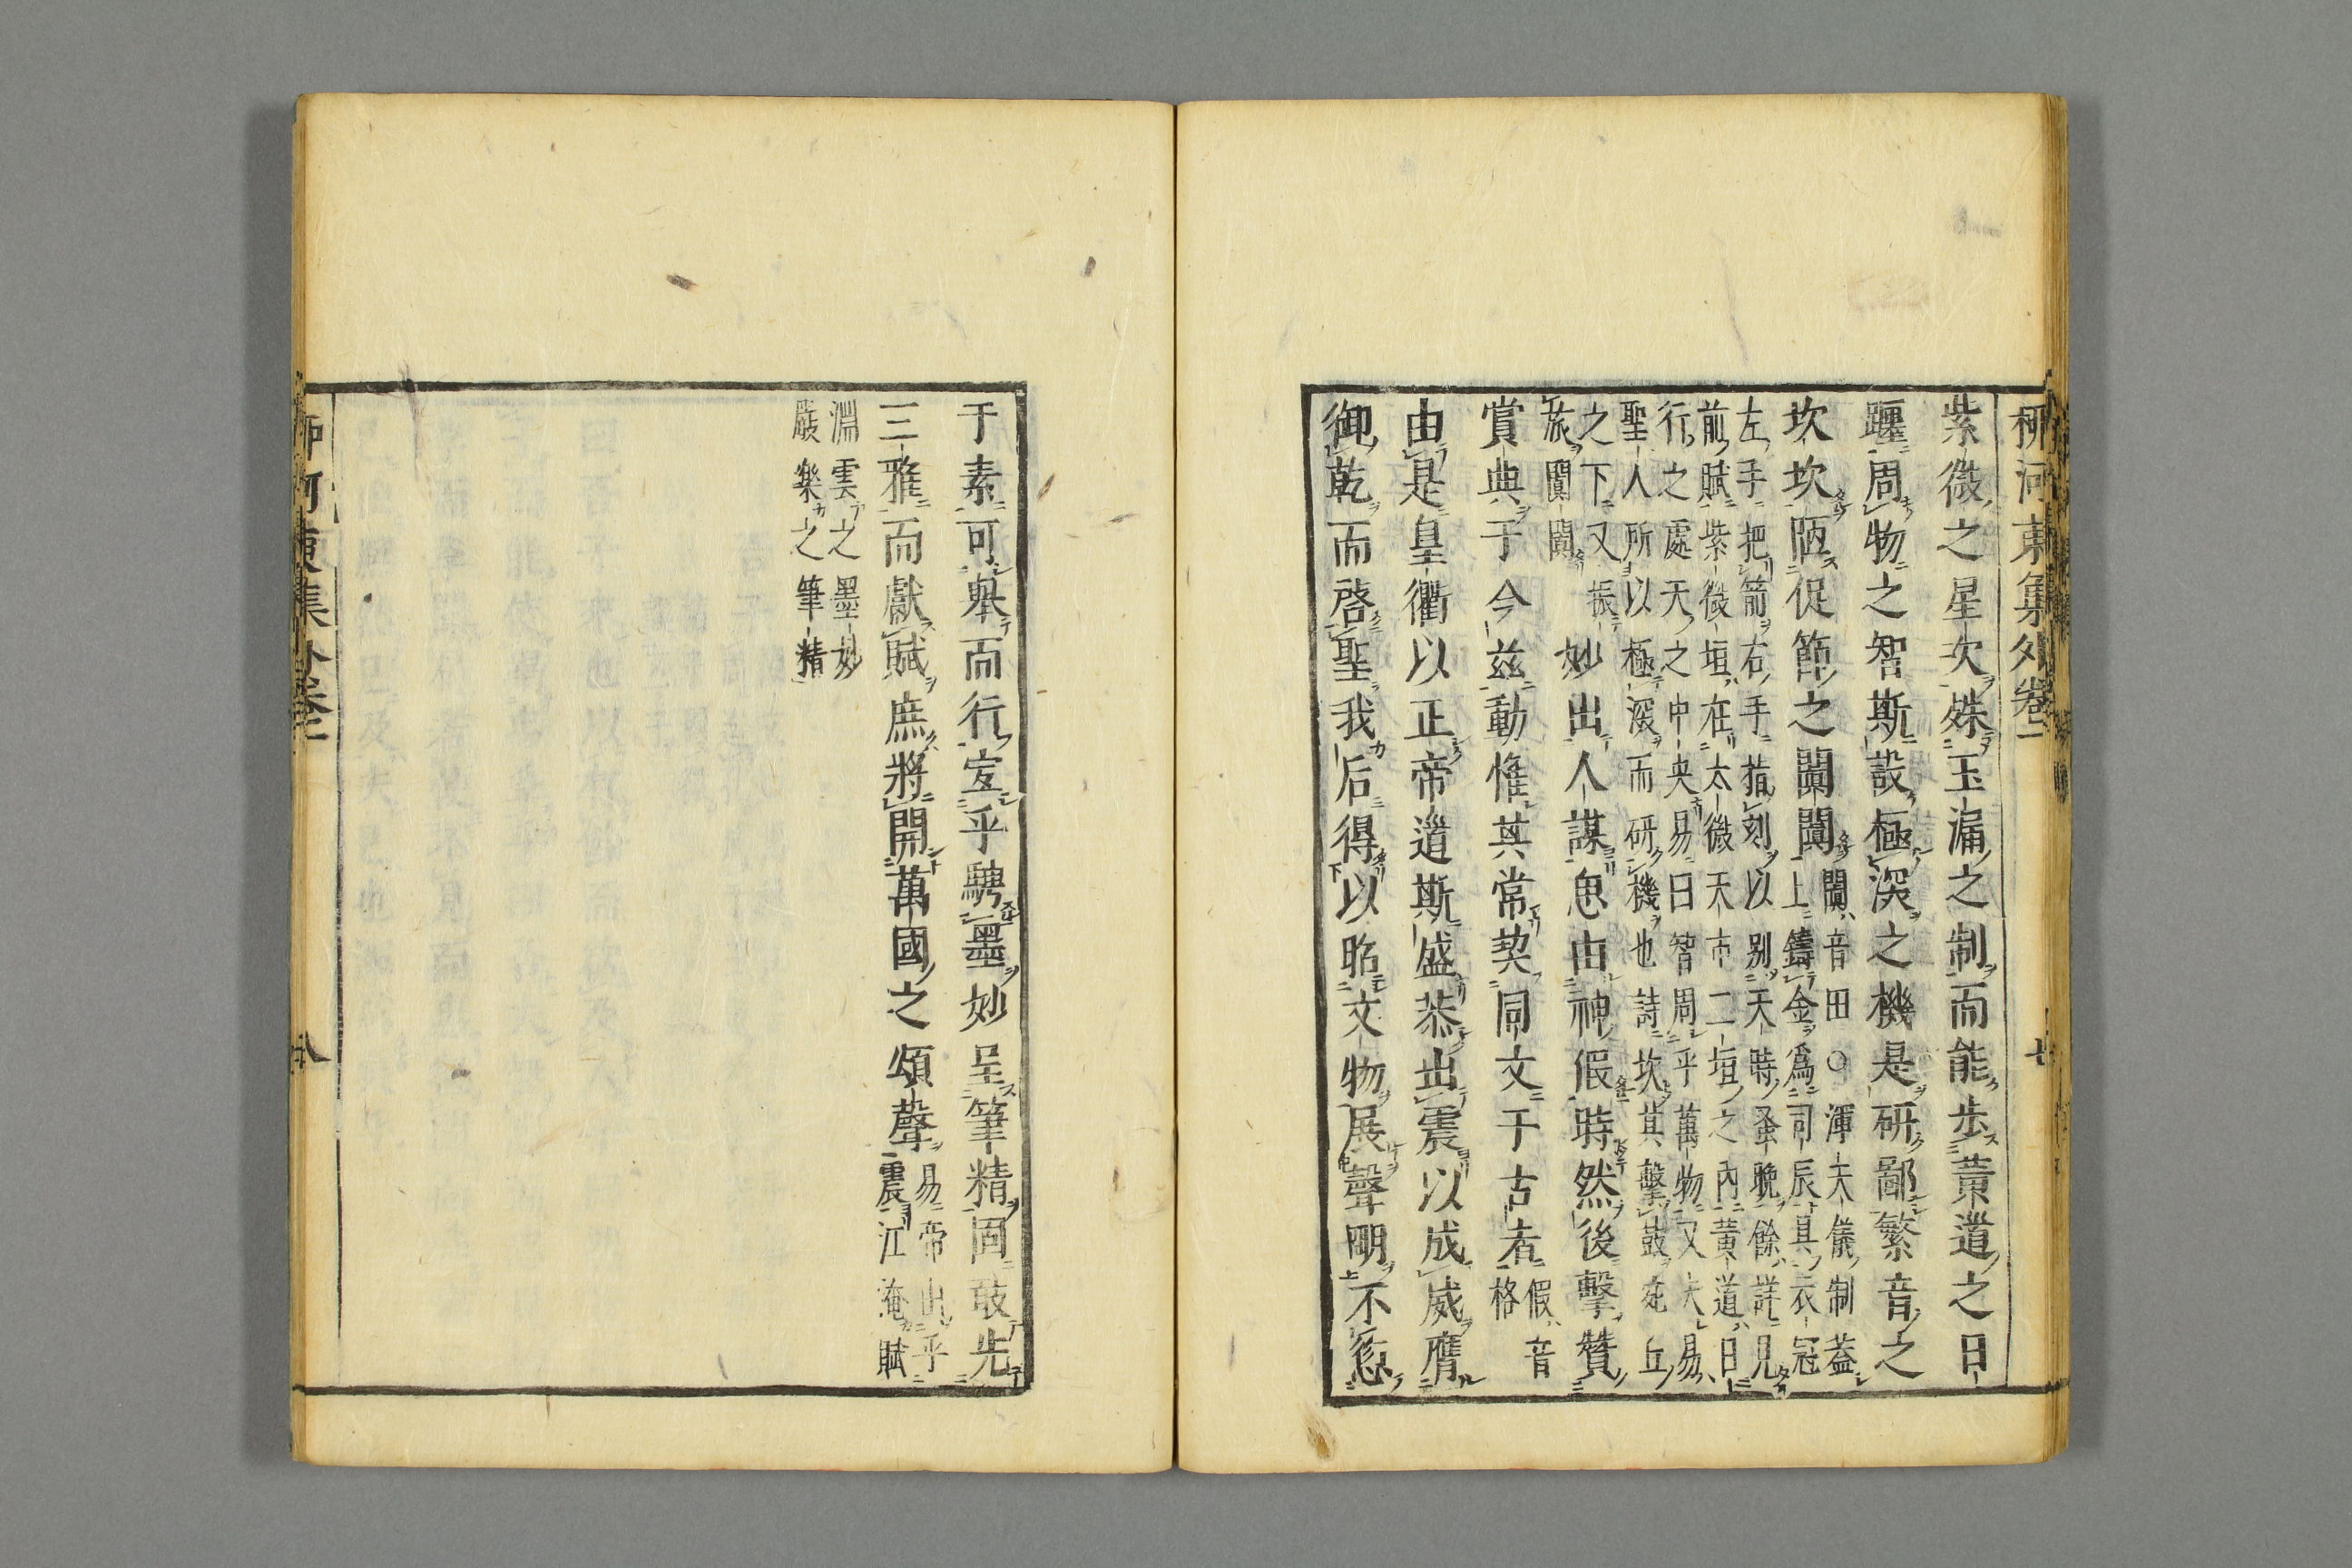 柳河東集外卷一
七
紫微之星次殊玉漏之制而能步黃道之日
躔周物之智斯設極深之機是研鄙繁音之
坎坎陋促節之闐闐闐音田○渾天儀制蓋
上鑄金爲司辰具衣冠
左手把箭右手指刻以別天時蚤晚餘詳見
前賦紫微垣在太微天市二垣之內黃道日
行之處天之中央易曰智周乎萬物又夫易
聖人所以極深而研機也詩坎其擊鼓宛丘
之下又振
旅闐闐
妙出人謀思由神假時然後擊贊
賞典于今茲動惟其常契同文于古者假音
格
由是皇衢以正帝道斯盛恭出震以成威膺
御乾而啓聖我后得以昭文物展聲明不愆
于素可舉而行宜乎騁墨妙呈筆精固敢先
三雅而獻賦庶將開萬國之頌聲易帝出乎
震江淹賦
淵雲之墨妙
嚴樂之筆精
柳河東集外卷一
八